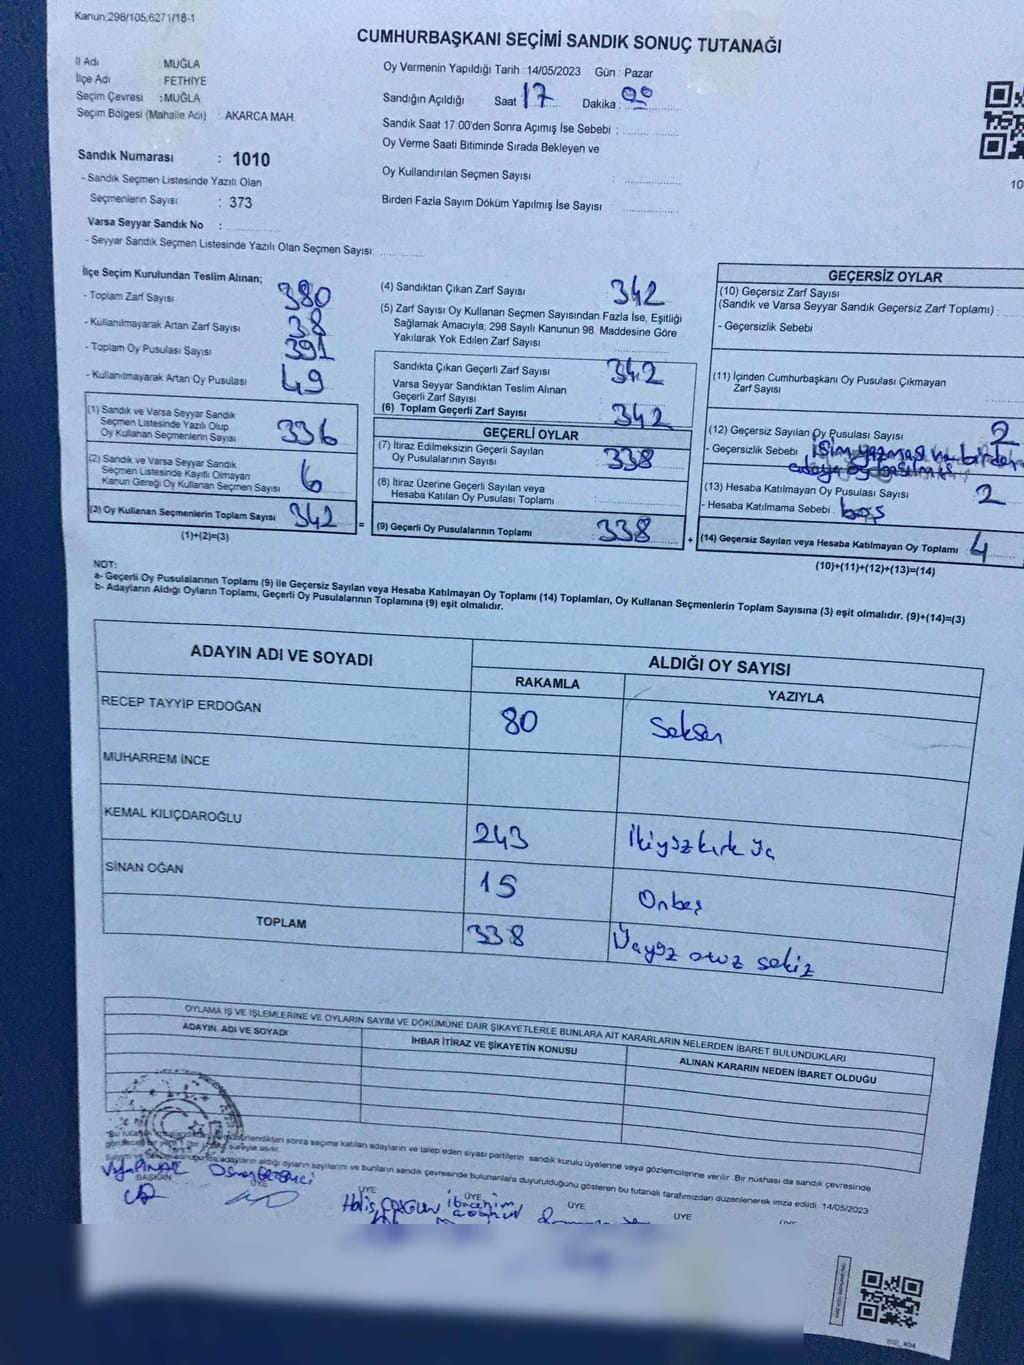 Kanun:298/105,6271/18-1
CUMHURBAŞKANI SEÇİMİ SANDIK SONUÇ TUTANAĞI
İl Adı : MUĞLA
İlçe Adı : FETHİYE
Seçim Çevresi : MUĞLA
Seçim Bölgesi (Mahalle Adı) : AKARCA MAH.
Oy Vermenin Yapıldığı Tarih : 14/05/2023 Gün : Pazar
Sandığın Açıldığı Saat 17 Dakika : 00
Sandık Saat 17:00'den Sonra Açımış İse Sebebi :
Oy Verme Saati Bitiminde Sırada Bekleyen ve
Oy Kullandırılan Seçmen Sayısı :
Birden Fazla Sayım Döküm Yapılmış İse Sayısı :
Sandık Numarası : 1010
- Sandık Seçmen Listesinde Yazılı Olan
Seçmenlerin Sayısı : 373
Varsa Seyyar Sandık No :
- Seyyar Sandık Seçmen Listesinde Yazılı Olan Seçmen Sayısı:
10
İlçe Seçim Kurulundan Teslim Alınan;
- Toplam Zarf Sayısı 380
- Kullanılmayarak Artan Zarf Sayısı 38
- Toplam Oy Pusulası Sayısı 391
- Kullanılmayarak Artan Oy Pusulası 49
(1) Sandık ve Varsa Seyyar Sandık
Seçmen Listesinde Yazılı Olup
Oy Kullanan Seçmenlerin Sayısı 336
(2) Sandık ve Varsa Seyyar Sandık
Seçmen Listesinde Kayıtlı Olmayan
Kanun Gereği Oy Kullanan Seçmen Sayısı 6
(3) Oy Kullanan Seçmenlerin Toplam Sayısı 342 =
(1)+(2)=(3)
(4) Sandıktan Çıkan Zarf Sayısı 342
(5) Zarf Sayısı Oy Kullanan Seçmen Sayısından Fazla İse, Eşitliği
Sağlamak Amacıyla; 298 Sayılı Kanunun 98. Maddesine Göre
Yakılarak Yok Edilen Zarf Sayısı
Sandıkta Çıkan Geçerli Zarf Sayısı 342
Varsa Seyyar Sandıktan Teslim Alınan
Geçerli Zarf Sayısı
(6) Toplam Geçerli Zarf Sayısı 342
GEÇERLİ OYLAR
(7) İtiraz Edilmeksizin Geçerli Sayılan
Oy Pusulalarının Sayısı 338
(8) İtiraz Üzerine Geçerli Sayılan veya
Hesaba Katılan Oy Pusulası Toplamı
(9) Geçerli Oy Pusulalarının Toplamı 338 +
GEÇERSİZ OYLAR
(10) Geçersiz Zarf Sayısı
(Sandık ve Varsa Seyyar Sandık Geçersiz Zarf Toplamı) :
- Geçersizlik Sebebi :
(11) İçinden Cumhurbaşkanı Oy Pusulası Çıkmayan
Zarf Sayısı
(12) Geçersiz Sayılan Oy Pusulası Sayısı 2
- Geçersizlik Sebebi isim yazması ve birden
adaya oy basılmış
(13) Hesaba Katılmayan Oy Pusulası Sayısı 2
- Hesaba Katılmama Sebebi : boş
(14) Geçersiz Sayılan veya Hesaba Katılmayan Oy Toplamı : 4
(10)+(11)+(12)+(13)=(14)
NOT:
a- Geçerli Oy Pusulalarının Toplamı (9) ile Geçersiz Sayılan veya Hesaba Katılmayan Oy Toplamı (14) Toplamları, Oy Kullanan Seçmenlerin Toplam Sayısına (3) eşit olmalıdır. (9)+(14)=(3)
b- Adayların Aldığı Oyların Toplamı, Geçerli Oy Pusulalarının Toplamına (9) eşit olmalıdır.
ADAYIN ADI VE SOYADI
ALDIĞI OY SAYISI
RAKAMLA YAZIYLA
RECEP TAYYİP ERDOĞAN 80 Seksen
MUHARREM İNCE
KEMAL KILIÇDAROĞLU 243 İkiyüzkırk üç
SİNAN OĞAN 15 Onbeş
TOPLAM 338 Üçyüz otuz sekiz
OYLAMA İŞ VE İŞLEMLERİNE VE OYLARIN SAYIM VE DÖKÜMÜNE DAİR ŞİKAYETLERLE BUNLARA AİT KARARLARIN NELERDEN İBARET BULUNDUKLARI
ADAYIN ADI VE SOYADI
İHBAR İTİRAZ VE ŞİKAYETİN KONUSU
ALINAN KARARIN NEDEN İBARET OLDUĞU
sonra seçime katılan adayların ve talep eden siyasi partilerin sandık kurulu üyelerine veya gözlemcilerine verilir. Bir nüshası da sandık çevresinde
adayların aldığı oyların sayılarını ve bunların sandık çevresinde bulunanlara duyurulduğunu gösteren bu tutanak tarafımızdan düzenlenerek imza edildi. 14/05/2023
BAŞKAN ÜYE ÜYE ÜYE ÜYE ÜYE
Halis COŞGUN İbrahim